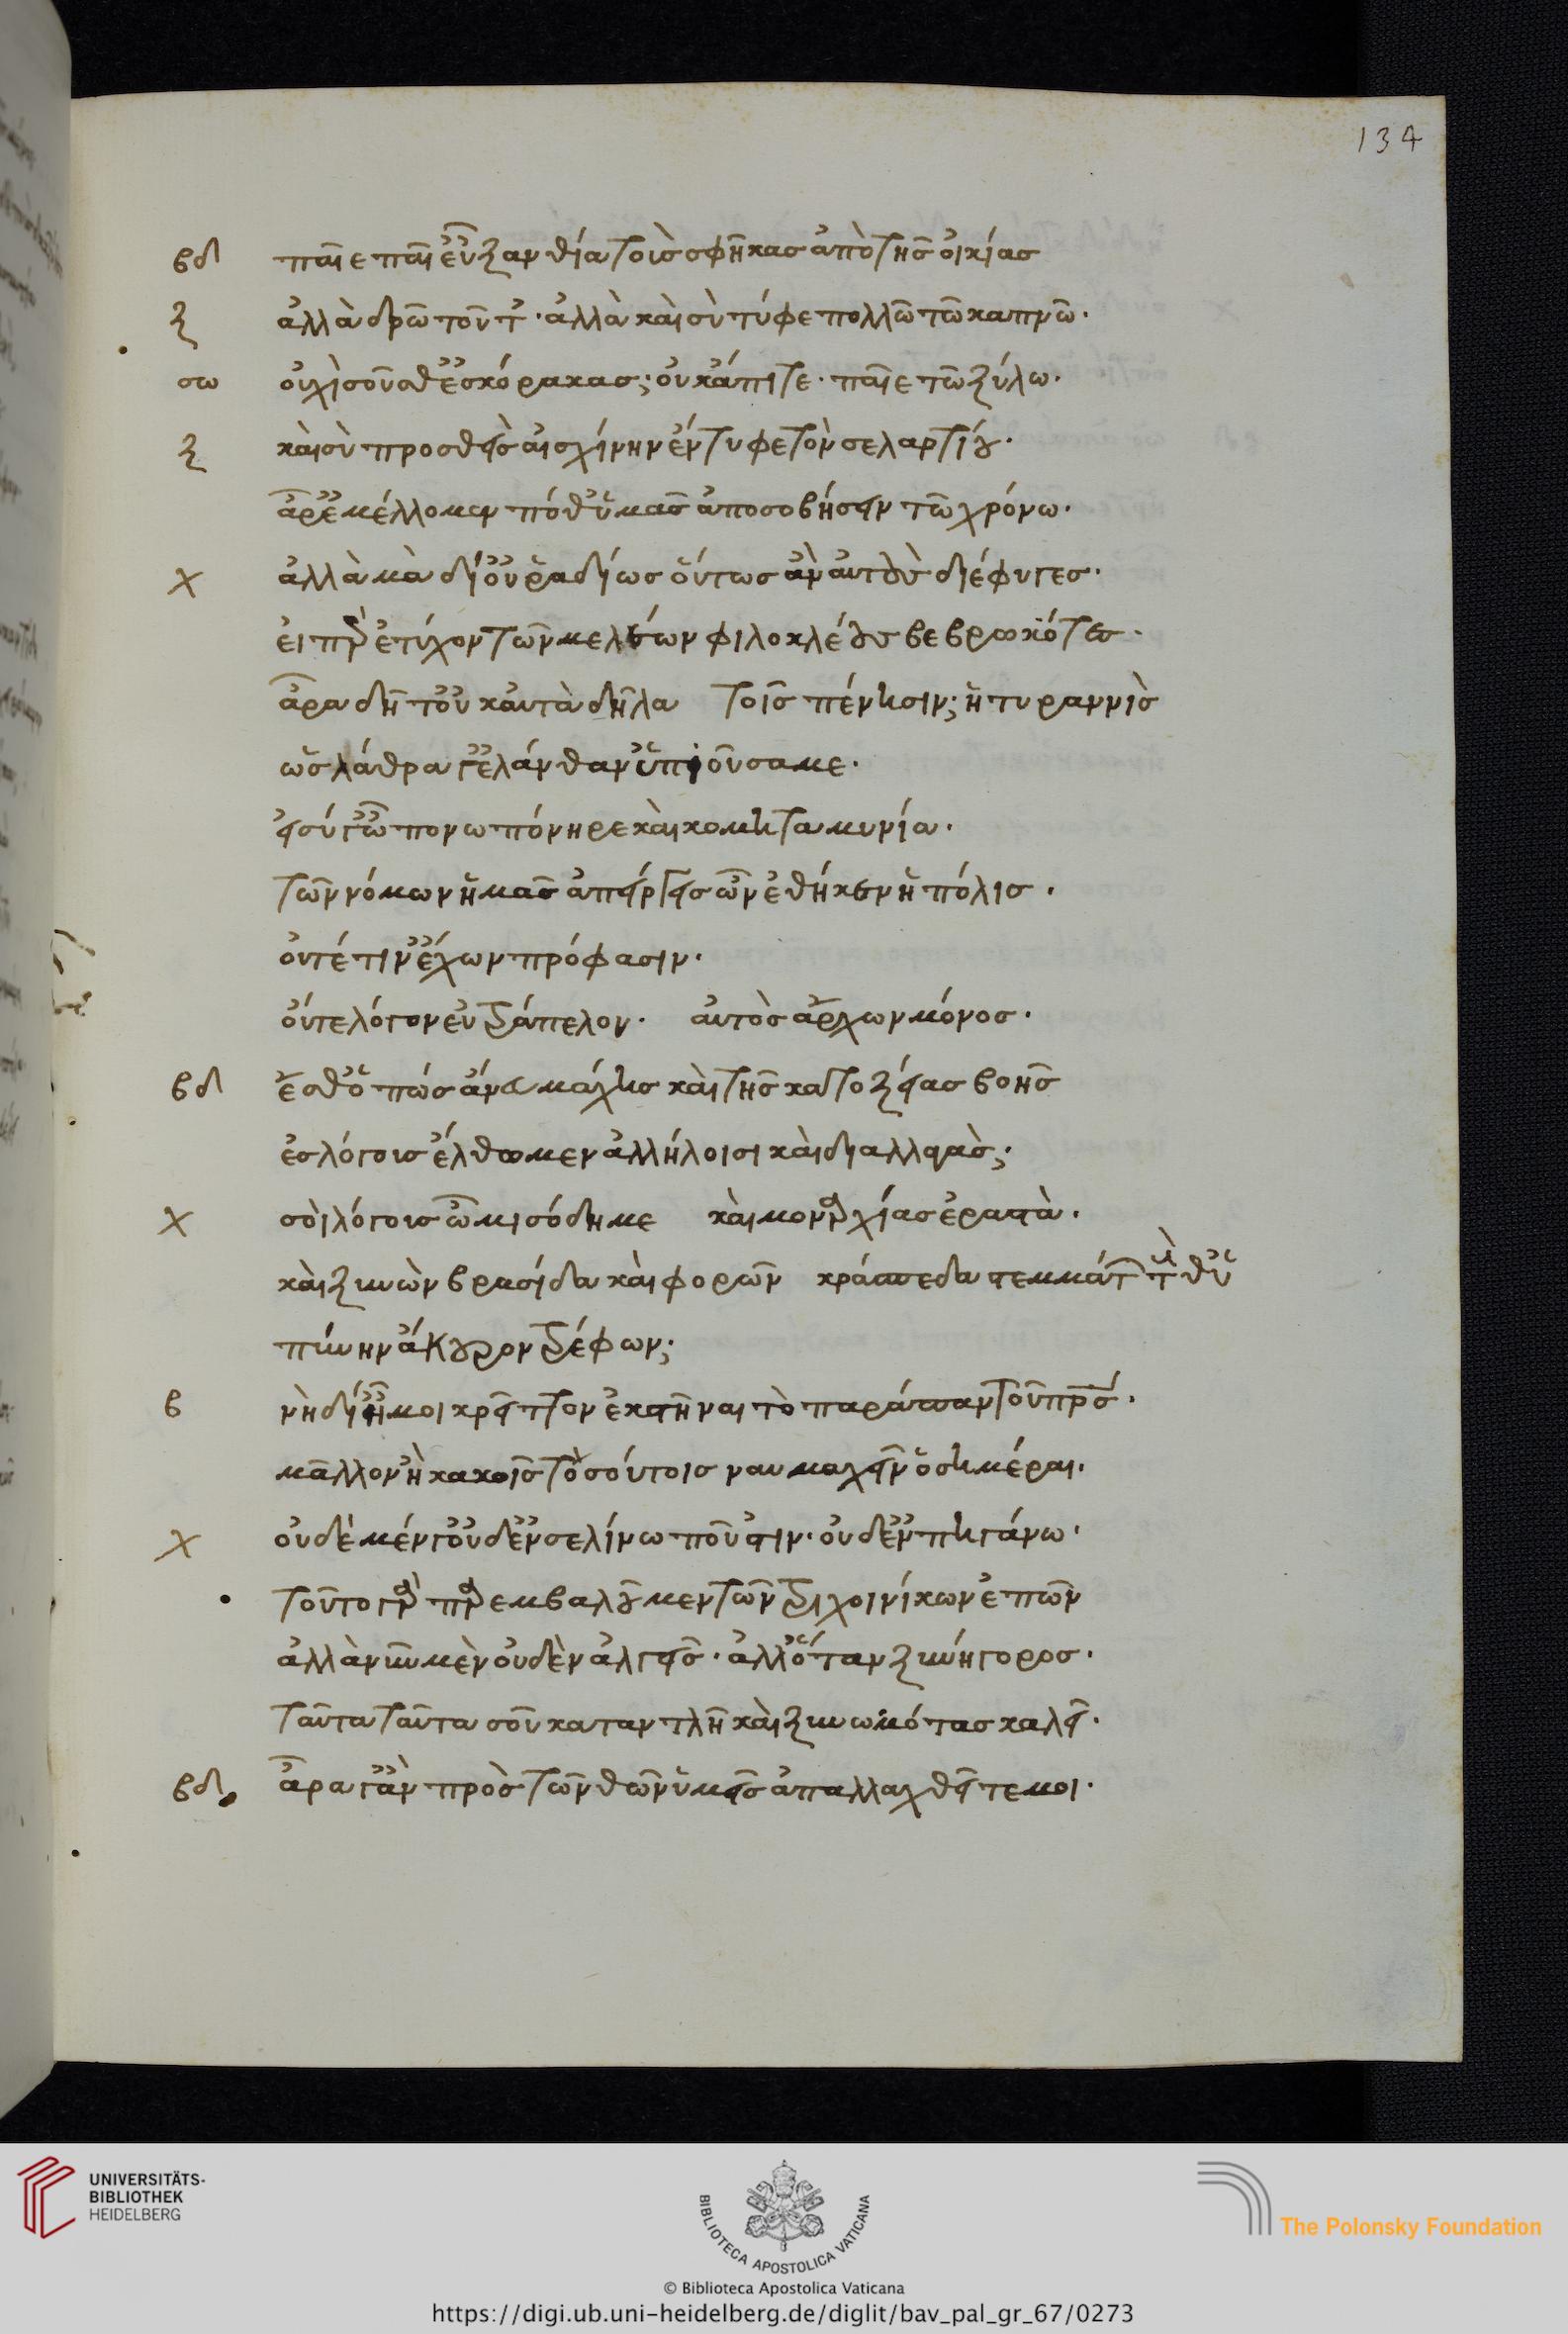 134
βδ παῖε παῖ' εὖ ξανθία τοὺς σφῆκας ἀπὸ τῆς οἰκίας
ξ ἀλλὰ δρῶ τοῦτ'· ἀλλὰ καὶ σὺ τύφε πολλῶ τῶ καπνῶ·
σω οὐχὶ σοῦσθ' ἐς κόρακας; οὐκ ἄπιτε· παῖε τῶ ξύλω·
ξ καὶ σὺ προσθεὶς αἰσχίνην ἔντυφε τὸν σελαρτίου·
ἆρ' ἐμέλλομεν πόθ' ὑμᾶς ἀποσοβήσειν τῶ χρόνω·
χ ἀλλὰ μὰ δί' οὐ ῥαδίως οὕτως ἂν αὐτοὺς διέφυγες·
εἴπερ ἔτυχον τῶν μελέων φιλοκλέους βεβρωκότες·
ἆρα δῆτ' οὐκ αὐτὰ δῆλα τοῖς πένησιν; ἡ τυραννὶς
ὡς λάθρα γ' ἐλάνθαν' ὑπιοῦσα με·
εἰ σύ γ' ὦ πονωπόνηρε καὶ κομηταμυνία·
τῶν νόμων ἡμᾶς ἀπείργεις ὧν ἔθηκεν ἡ πόλις·
οὔτέ τιν' ἔχων πρόφασιν·
οὔτε λόγον εὐτράπελον· αὐτὸς ἄρχων μόνος·
βδ ἔσθ' ὅπως ἄνευ μάχης καὶ τῆς κατοξείας βοῆς
ἐς λόγοις ἔλθωμεν ἀλλήλοισι καὶ διαλλαγάς;
χ σοὶ λόγοις ὦ μισόδημε καὶ μοναρχίας ἐραστά·
καὶ ξυνὼν βρασίδα καὶ φορῶν κράσπεδα στεμμάτων τὴν θ' ὑ
πήνην ἄκουρον τρέφων;
β νὴ δί' ἦ μοι κρεῖττον ἐκστῆναι τὸ παράπαν τοῦ πατρός·
μᾶλλον ἢ κακοῖς τοσούτοις ναυμαχεῖν ὁσημέραι·
χ οὐδὲ μέν γ' οὐδ' ἐν σελίνω ποῦ 'στιν· οὐδ' ἐν πηγάνω·
τοῦτο γὰρ παρεμβαλοῦμεν τῶν τριχοινίκων ἐπῶν
ἀλλὰ νῦν μὲν οὐδὲν ἀλγεῖς· ἀλλ' ὅταν ξυνήγορος·
ταῦτα ταῦτα σοῦ καταντλῆ καὶ ξυνωμότας καλεῖ·
βδ ἆρα γ' ἂν πρὸς τῶν θεῶν ὑμεῖς ἀπαλλαχθεῖτε μοι·
UNIVERSITÄTS-
BIBLIOTHEK
HEIDELBERG
BIBLIOTECA APOSTOLICA VATICANA
The Polonsky Foundation
© Biblioteca Apostolica Vaticana
https://digi.ub.uni-heidelberg.de/diglit/bav_pal_gr_67/0273